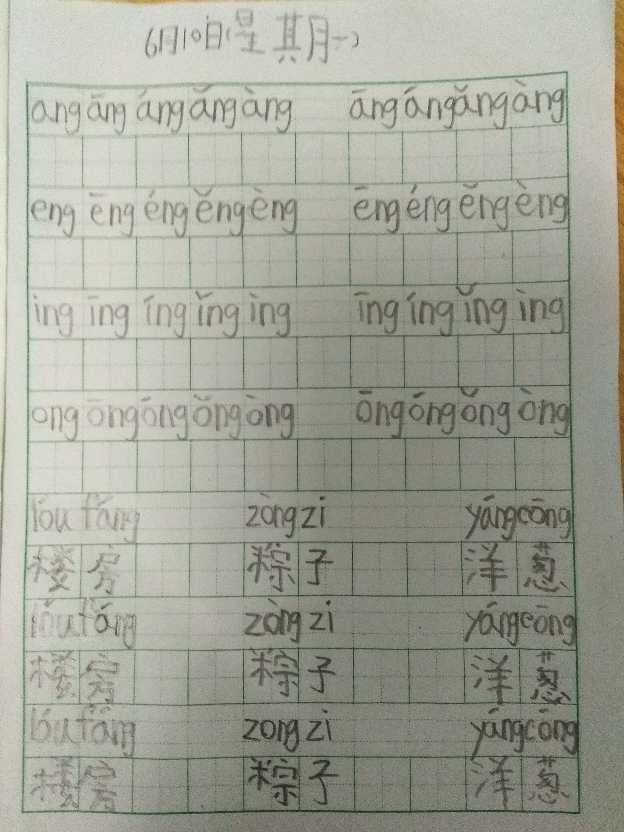 6月10日(星期一)
ang āng áng ǎng àng āng áng ǎng àng
eng ēng éng ěng èng ēng éng ěng èng
ing īng íng ǐng ìng īng íng ǐng ìng
ong ōng óng ǒng òng ōng óng ǒng òng
lóu fáng zòng zi yángcōng
楼房 粽子 洋葱
lóu fáng zòng zi yángcōng
楼房 粽子 洋葱
lóu fáng zong zi yángcōng
楼房 粽子 洋葱